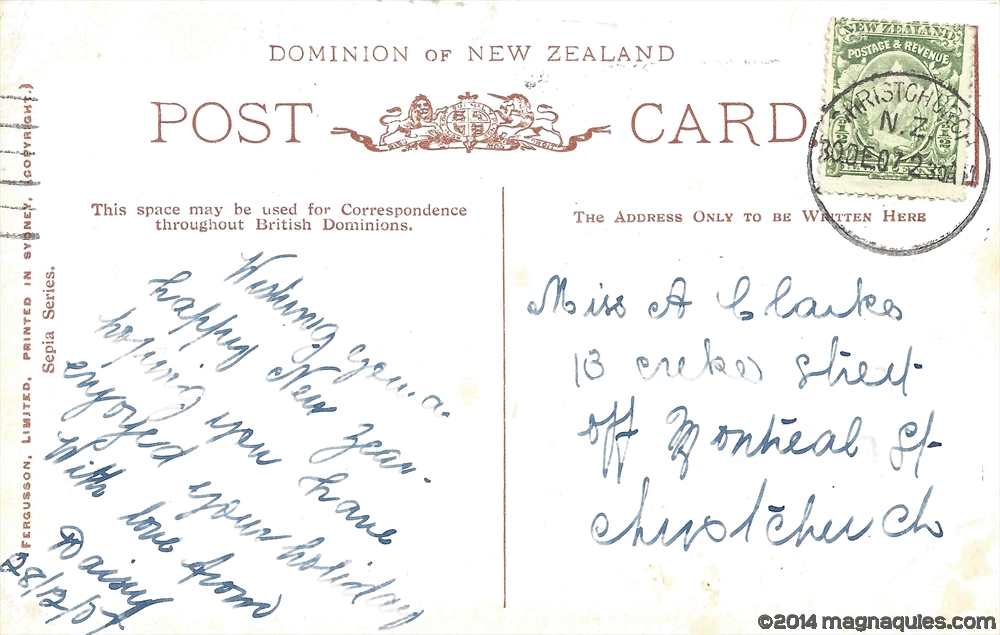 DOMINION OF NEW ZEALAND
POST CARD
NEW ZEALAND
POSTAGE & REVENUE
CHRISTCHURCH
N.Z.
30 DE 07 2 30 AM
FERGUSSON, LIMITED, PRINTED IN SYDNEY, (COPYRIGHT.)
Sepia Series.
This space may be used for Correspondence
throughout British Dominions.
Wishing you a
happy New Year.
hoping you have
enjoyed your holiday
With love from
Daisy
THE ADDRESS ONLY TO BE WRITTEN HERE
Miss A Clarke
13 creke Street
off Montreal St
Christchurch
©2014 magnaquies.com